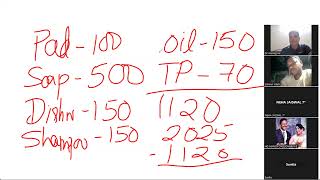 Pad - 100
Soap - 500
Dishw - 150
Shampoo - 150
oil - 150
TP - 70
1120
2025
- 1120
NEHA JAISWAL